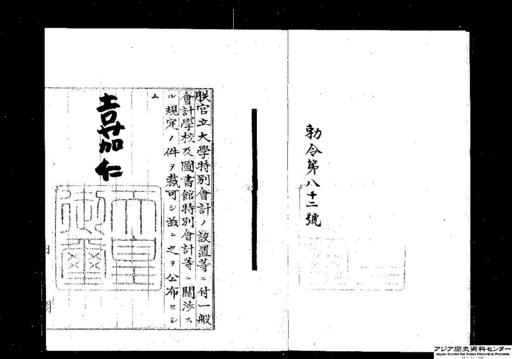 勅令第八十二號
朕官立大學特別會計ノ設置等ニ付一般
會計學校及圖書館特別會計等ニ關渉ス
ル規定ノ件ヲ裁可シ茲ニ之ヲ公布セシ
ム
嘉仁
天皇
御璽
アジア歴史資料センター
Japan Center for Asian Historical Records